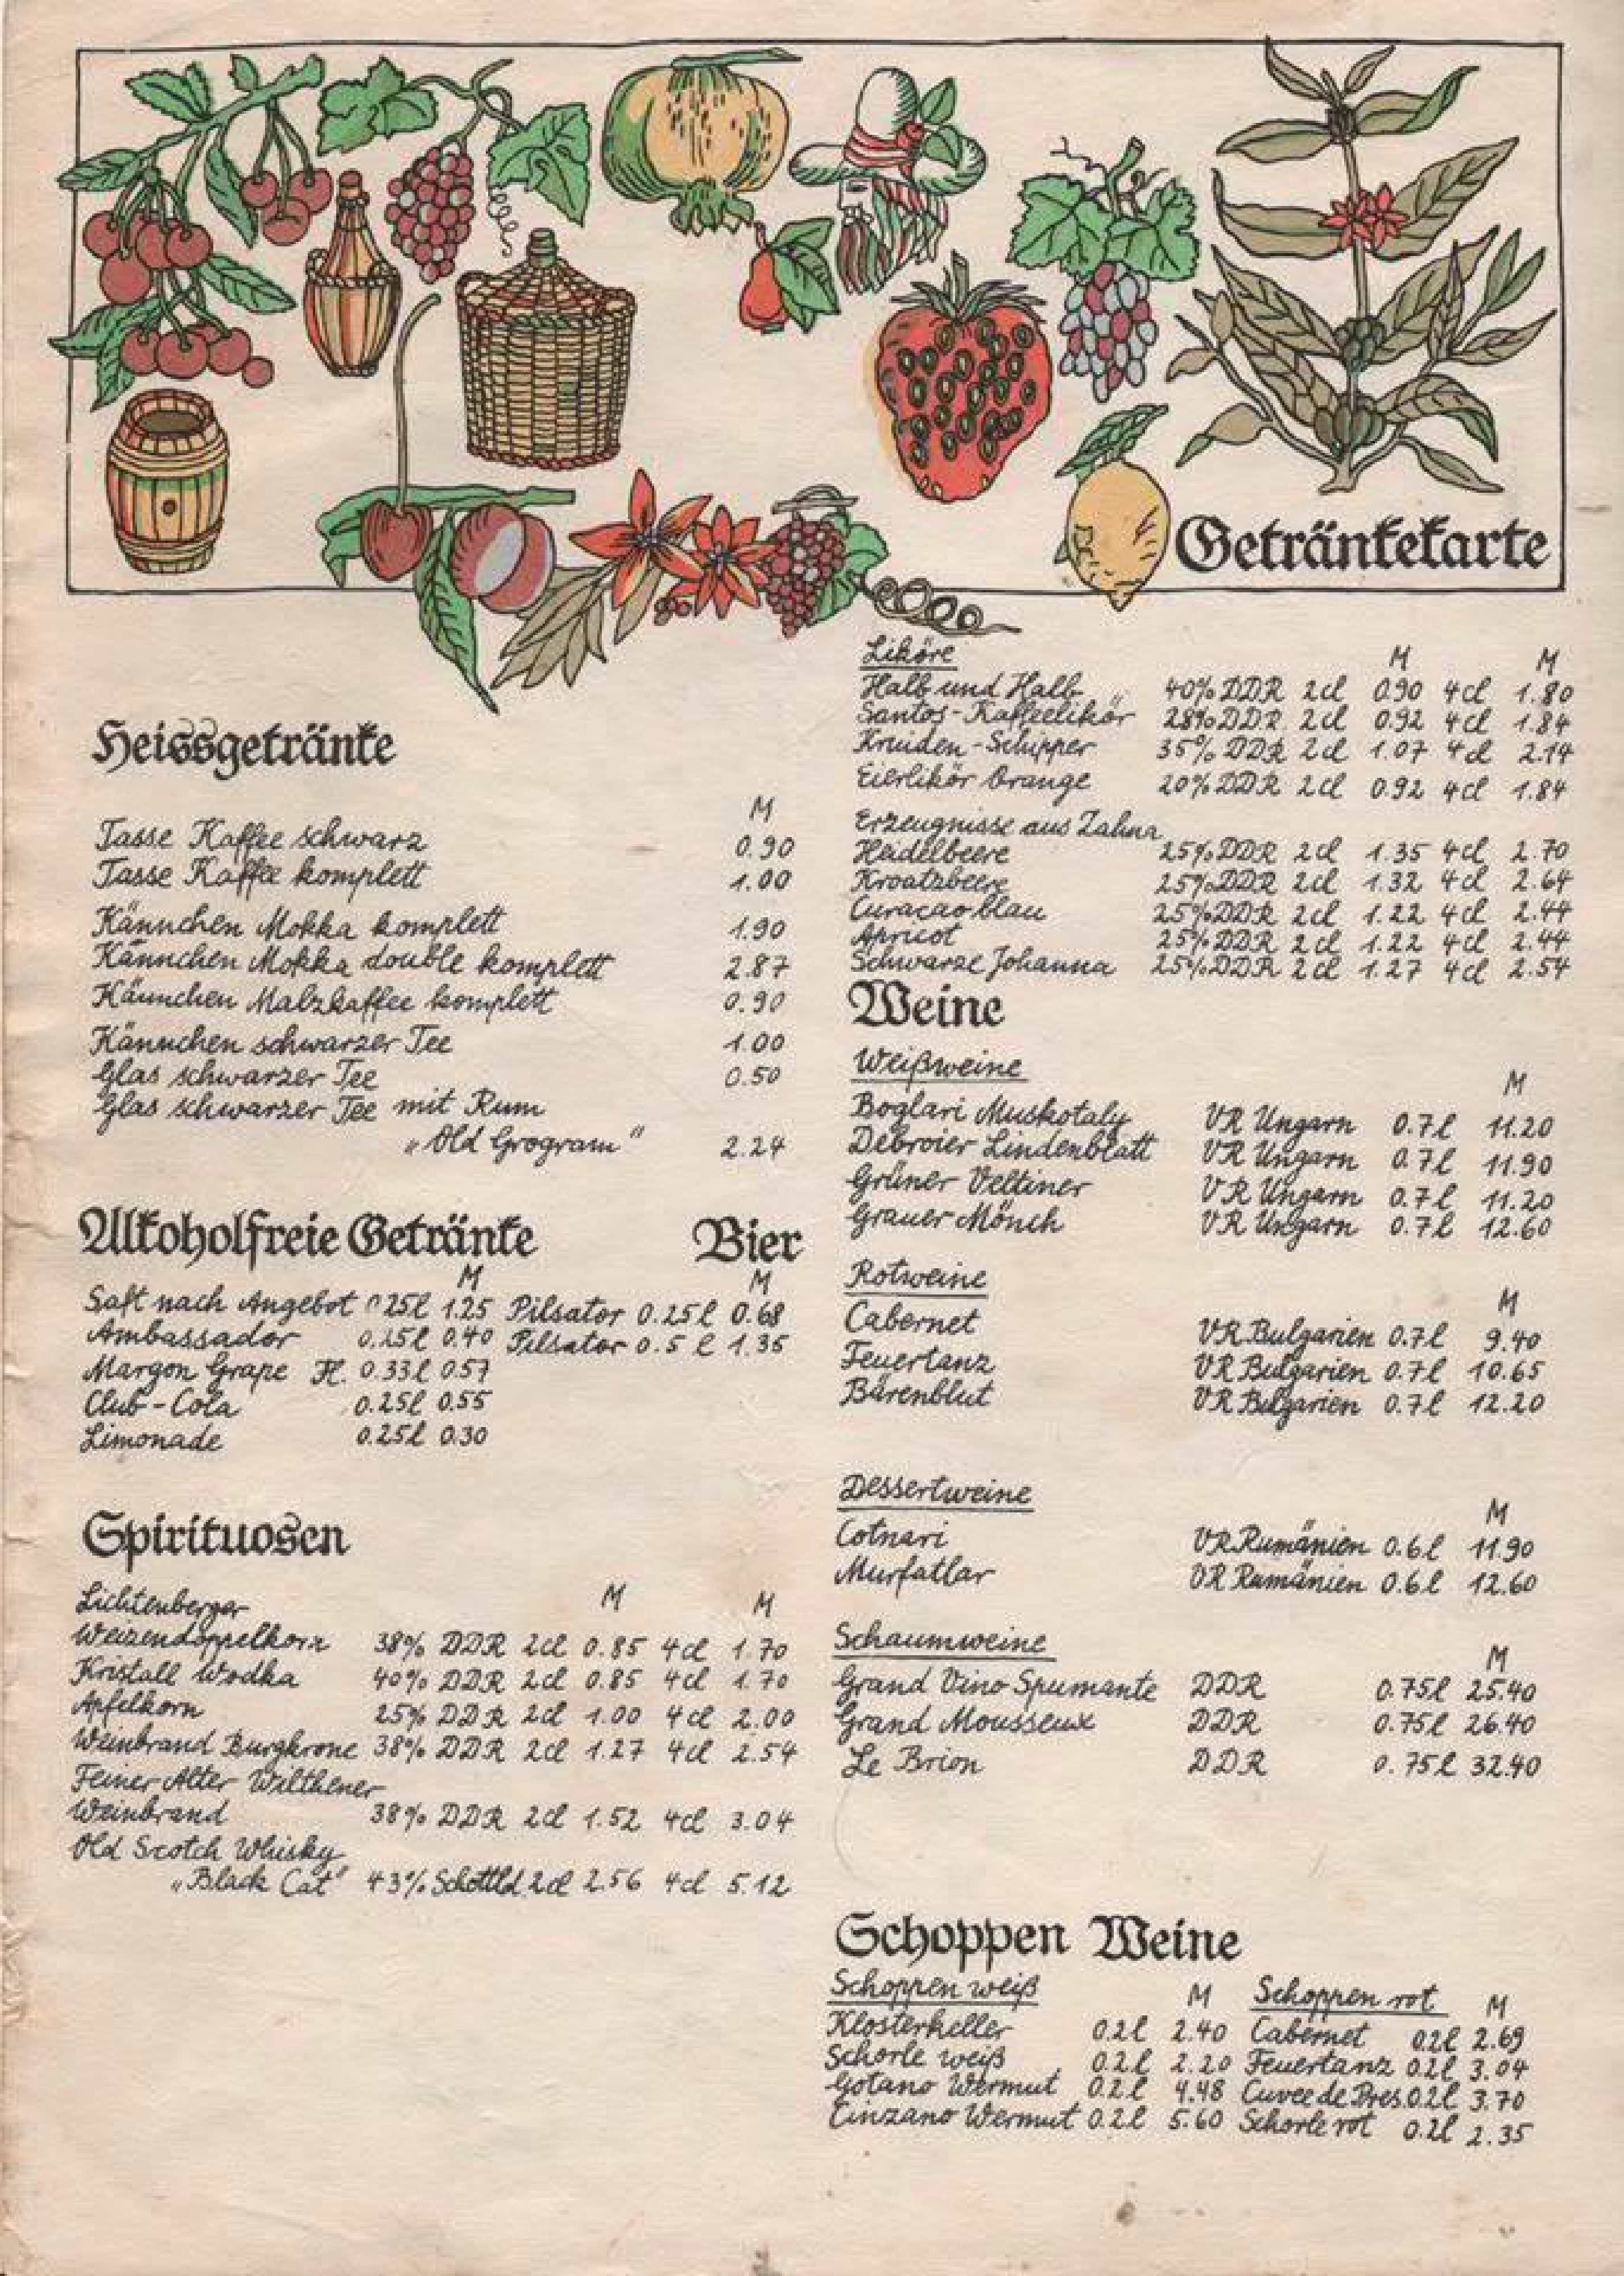 Getränkekarte
Heissgetränke
M
Tasse Kaffee schwarz 0.90
Tasse Kaffee komplett 1.00
Kännchen Mokka komplett 1.90
Kännchen Mokka double komplett 2.87
Kännchen Malzkaffee komplett 0.90
Kännchen schwarzer Tee 1.00
Glas schwarzer Tee 0.50
Glas schwarzer Tee mit Rum
„Old Grogram" 2.24
Alkoholfreie Getränke
M
Saft nach Angebot 0.25l 1.25
Ambassador 0.25l 0.40
Margon Grape Fl. 0.33l 0.57
Club-Cola 0.25l 0.55
Limonade 0.25l 0.30
Bier
M
Pilsator 0.25l 0.68
Pilsator 0.5l 1.35
Spirituosen
M M
Lichtenberger
Weizendoppelkorn 38% DDR 2cl 0.85 4cl 1.70
Kristall Wodka 40% DDR 2cl 0.85 4cl 1.70
Apfelkorn 25% DDR 2cl 1.00 4cl 2.00
Weinbrand Burgkrone 38% DDR 2cl 1.27 4cl 2.54
Feiner Alter Wilthener
Weinbrand 38% DDR 2cl 1.52 4cl 3.04
Old Scotch Whisky
„Black Cat" 43% Schottld. 2cl 2.56 4cl 5.12
Liköre M M
Halb und Halb 40% DDR 2cl 0.90 4cl 1.80
Santos-Kaffeelikör 28% DDR 2cl 0.92 4cl 1.84
Kruiden-Schipper 35% DDR 2cl 1.07 4cl 2.14
Eierlikör Orange 20% DDR 2cl 0.92 4cl 1.84
Erzeugnisse aus Zahna
Heidelbeere 25% DDR 2cl 1.35 4cl 2.70
Kroatzbeere 25% DDR 2cl 1.32 4cl 2.64
Curacao blau 25% DDR 2cl 1.22 4cl 2.44
Apricot 25% DDR 2cl 1.22 4cl 2.44
Schwarze Johanna 25% DDR 2cl 1.27 4cl 2.54
Weine
Weißweine M
Boglari Muskotaly VR Ungarn 0.7l 11.20
Debroier Lindenblatt VR Ungarn 0.7l 11.90
Grüner Veltiner VR Ungarn 0.7l 11.20
Grauer Mönch VR Ungarn 0.7l 12.60
Rotweine M
Cabernet VR Bulgarien 0.7l 9.40
Feuertanz VR Bulgarien 0.7l 10.65
Bärenblut VR Bulgarien 0.7l 12.20
Dessertweine M
Cotnari VR Rumänien 0.6l 11.90
Murfatlar VR Rumänien 0.6l 12.60
Schaumweine M
Grand Vino Spumante DDR 0.75l 25.40
Grand Mousseux DDR 0.75l 26.40
Le Brion DDR 0.75l 32.40
Schoppen Weine
Schoppen weiß M
Klosterkeller 0.2l 2.40
Schorle weiß 0.2l 2.20
Gotano Wermut 0.2l 4.48
Cinzano Wermut 0.2l 5.60
Schoppen rot M
Cabernet 0.2l 2.69
Feuertanz 0.2l 3.04
Cuvee de Pres. 0.2l 3.70
Schorle rot 0.2l 2.35